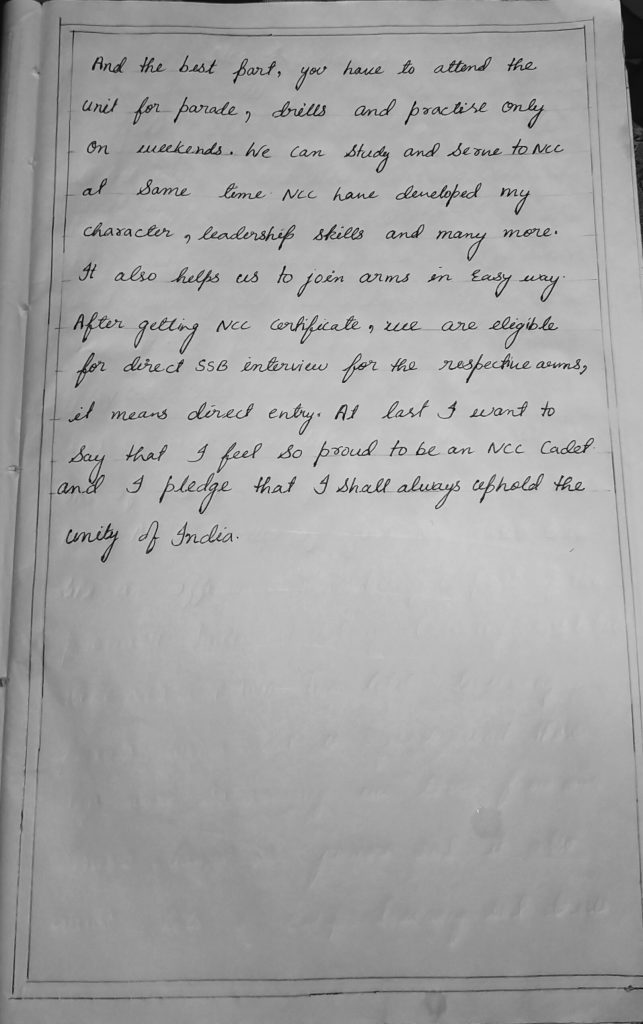 And the best part, you have to attend the
unit for parade, drills and practise only
on weekends. We can study and serve to NCC
at same time. NCC have developed my
character, leadership skills and many more.
It also helps us to join arms in easy way.
After getting NCC certificate, we are eligible
for direct SSB interview for the respective arms,
it means direct entry. At last I want to
say that I feel so proud to be an NCC Cadet.
and I pledge that I shall always uphold the
unity of India.